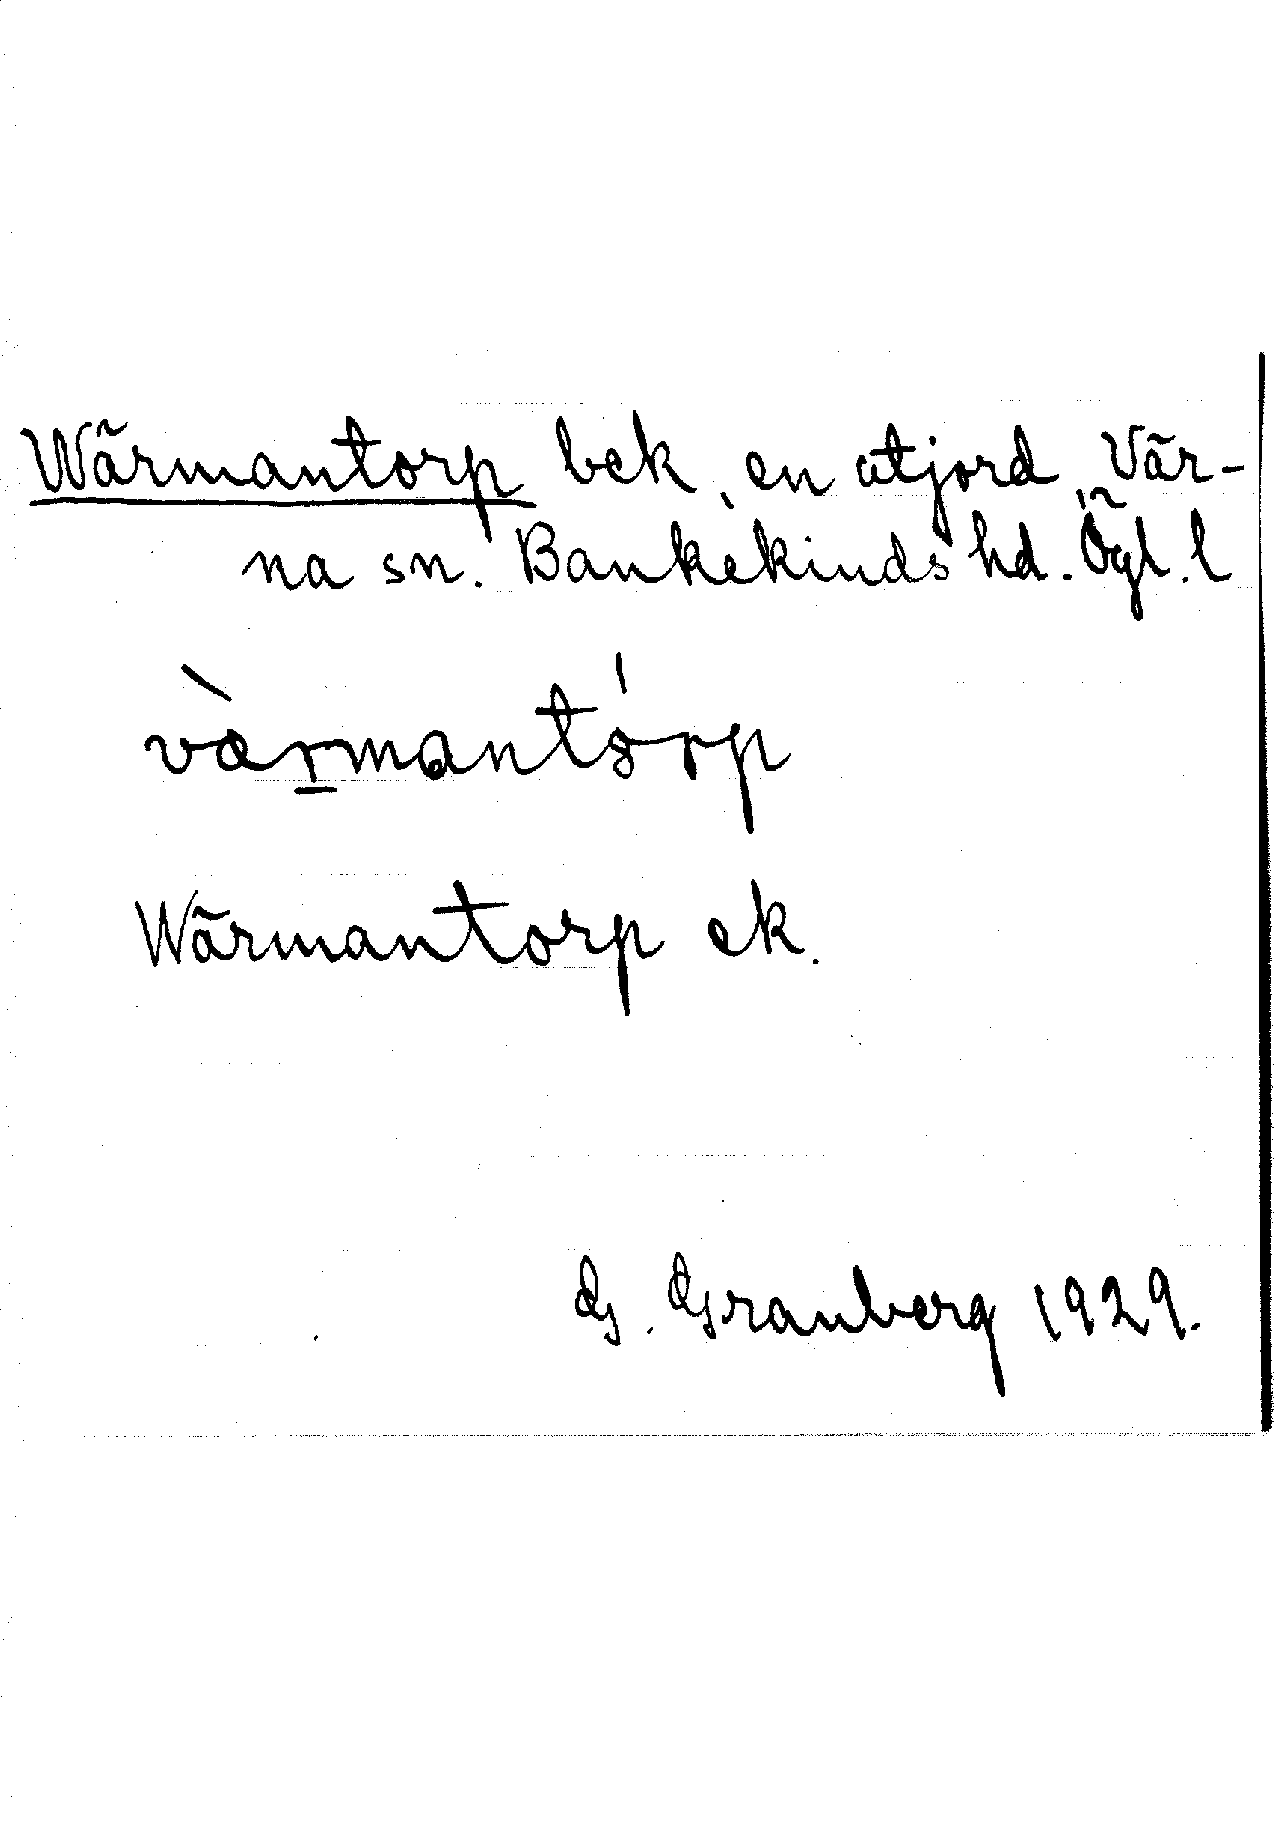 Wärmantorp bek, en utjord, Vär-
na sn. Bankekinds hd. Ögl. l
värmantorp
Wärmantorp ek.
G. Granberg 1929.